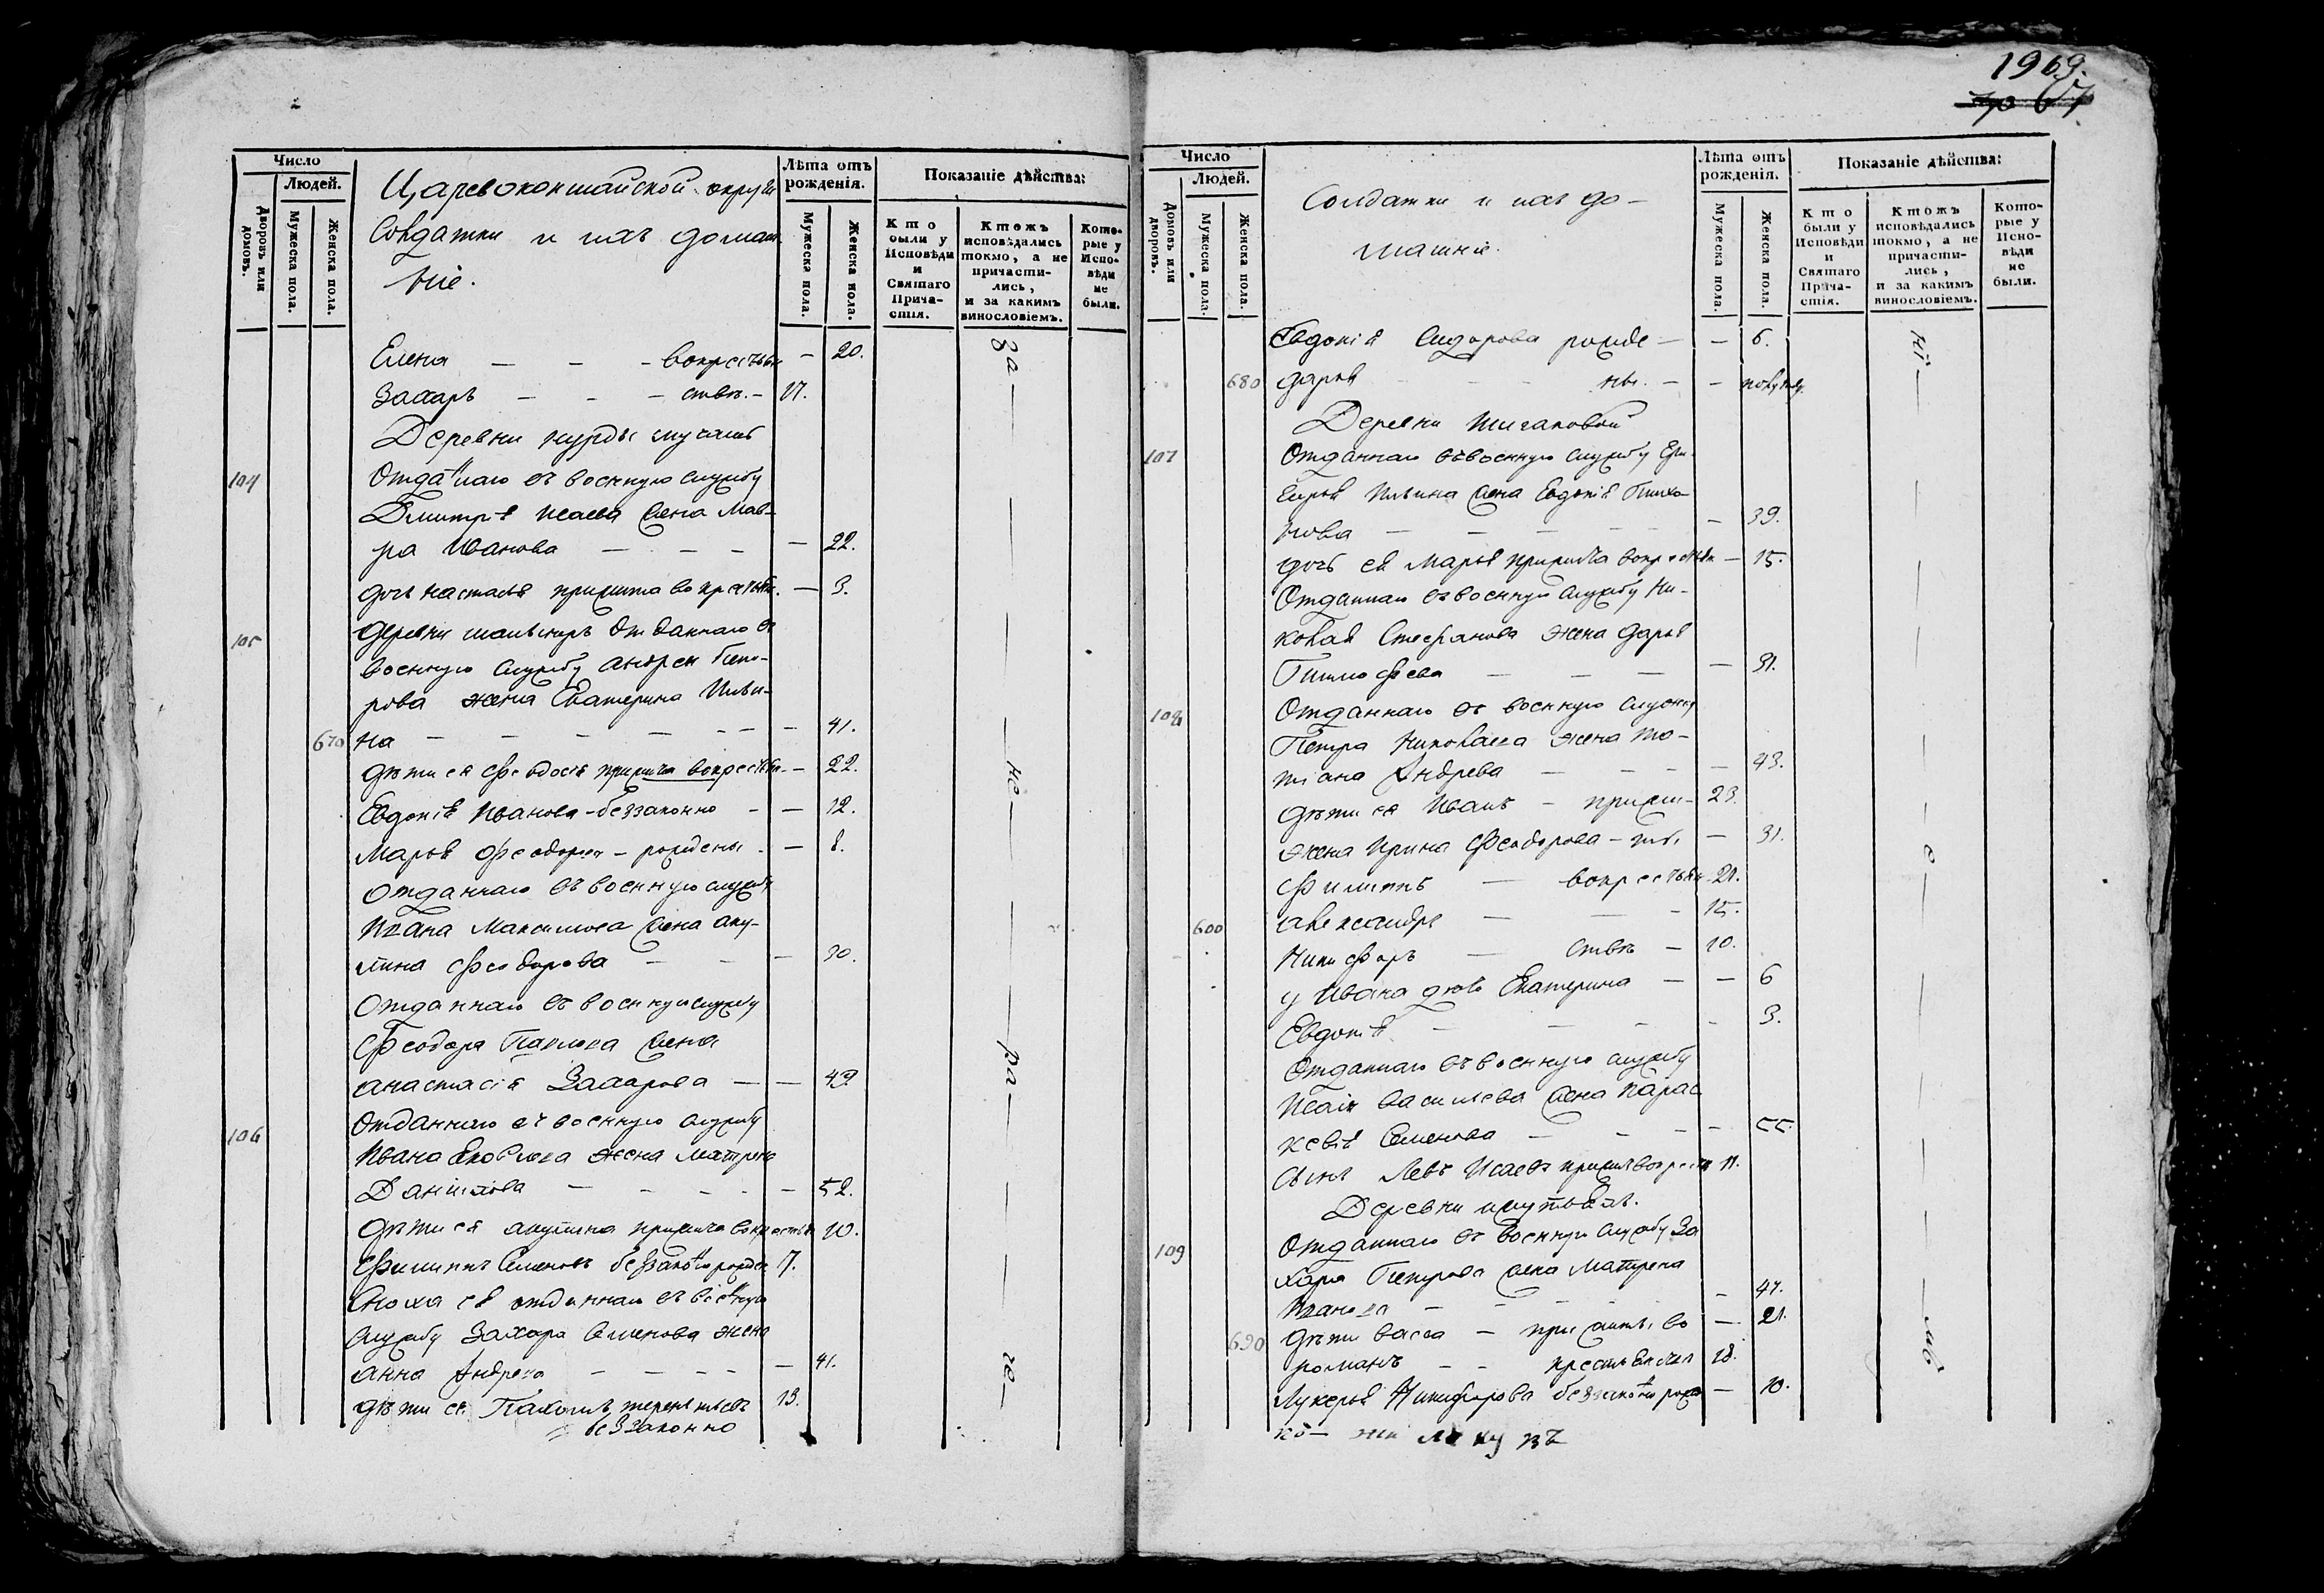 1969.
67
Число
Людей.
Дворовъ или домовъ.
Мужеска пола.
Женска пола.
Царевококшайской округи
Солдатки и ихъ домаш
ніе.
Лѣта отъ рожденія.
Мужеска пола.
Женска пола.
Показаніе дѣйства:
Кто были у Исповѣди и Святаго Прича-стія.
Ктожъ исповѣдались токмо, а не причасти-лись, и за какимъ винословіемъ.
Кото-рые у Испо-вѣди не были.
Елена — — — вокрестьян — 20.
Захаръ — — — ствѣ. — 17.
Деревни
104 Отданнаго въ военную службу
Дмитрія Исаева жена Мав-
ра Иванова — — — — 22.
дочь Настасья прижита вокрестья. — 3.
105 Деревни отданнаго въ
военную службу Андрея
рова жена Екатерина Ильи-
670 на — — — — — — 41.
дѣти ея Феодосья прижита вокрестья. — 22.
Евдокія Иванова — беззаконно — — 12.
Марья Феодорова — рождены — 8.
Отданнаго въ военную службу
Ивана Максимова жена Аку-
лина Феодорова — — — 30.
Отданнаго въ военную службу
Феодора Павлова жена
Анастасія Захарова — — 49.
106 Отданнаго въ военную службу
Ивана Яковлева жена Матрена
Данилова — — — — — 52.
дѣти ея Акулина прижита вокрестьян 10.
Филиппъ Семеновъ беззаконно рожден 7.
Сноха ея отданнаго въ военную
службу Захара Семенова жена
Анна Андреева — — — — — 41.
дѣти ея Пахомъ терентьевъ 13.
беззаконно
За — — не — ра — че —
Число
Людей.
Домовъ или дворовъ.
Мужеска пола.
Женска пола.
Солдатки и ихъ до-
машніе.
Лѣта отъ рожденія.
Мужеска пола.
Женска пола.
Показаніе дѣйства:
Кто были у Исповѣди и Святаго Прича-стія.
Ктожъ исповѣдались токмо, а не причасти-лись, и за какимъ винословіемъ.
Кото-рые у Испо-вѣди не были.
Евдокія Сидорова рожде — — 6.
680 Дарья — — — ны. — —
Деревни Жигановой
107 Отданнаго въ военную службу
Ильина жена Евдокія Тихо-
нова — — — — — 39.
дочь ея Марья прижита вокрестьян — 15.
Отданнаго въ военную службу Ни-
колая Стефанова жена Дарья
Тимофеева — — — — 31.
108 Отданнаго въ военную службу
Петра Николаева жена Та-
тіана Андреева — — — — 43.
дѣти ея Иванъ — прижи- 23.
жена Ирина Феодорова — ты, — 31.
Филиппъ — вокрестьян 21.
Александръ — — — 15.
600 Никифоръ — ствѣ — 10.
у Ивана дочь Екатерина — — 6
Евдокія — — — — 3.
Отданнаго въ военную службу
Исаія Васильева жена Парас
кевія Семенова — — — — 55.
сынъ Левъ Исаевъ прижит вокрестья 11.
Деревни
109 Отданнаго въ военную службу За
хара Петрова жена Матрена
Иванова — — — — 47.
дѣти Васса — прижиты во — 21.
690 Романъ — — крестьянствѣ 18.
Лукерья Никифорова беззаконно рожд — 10.
кі — — е — — мѣ